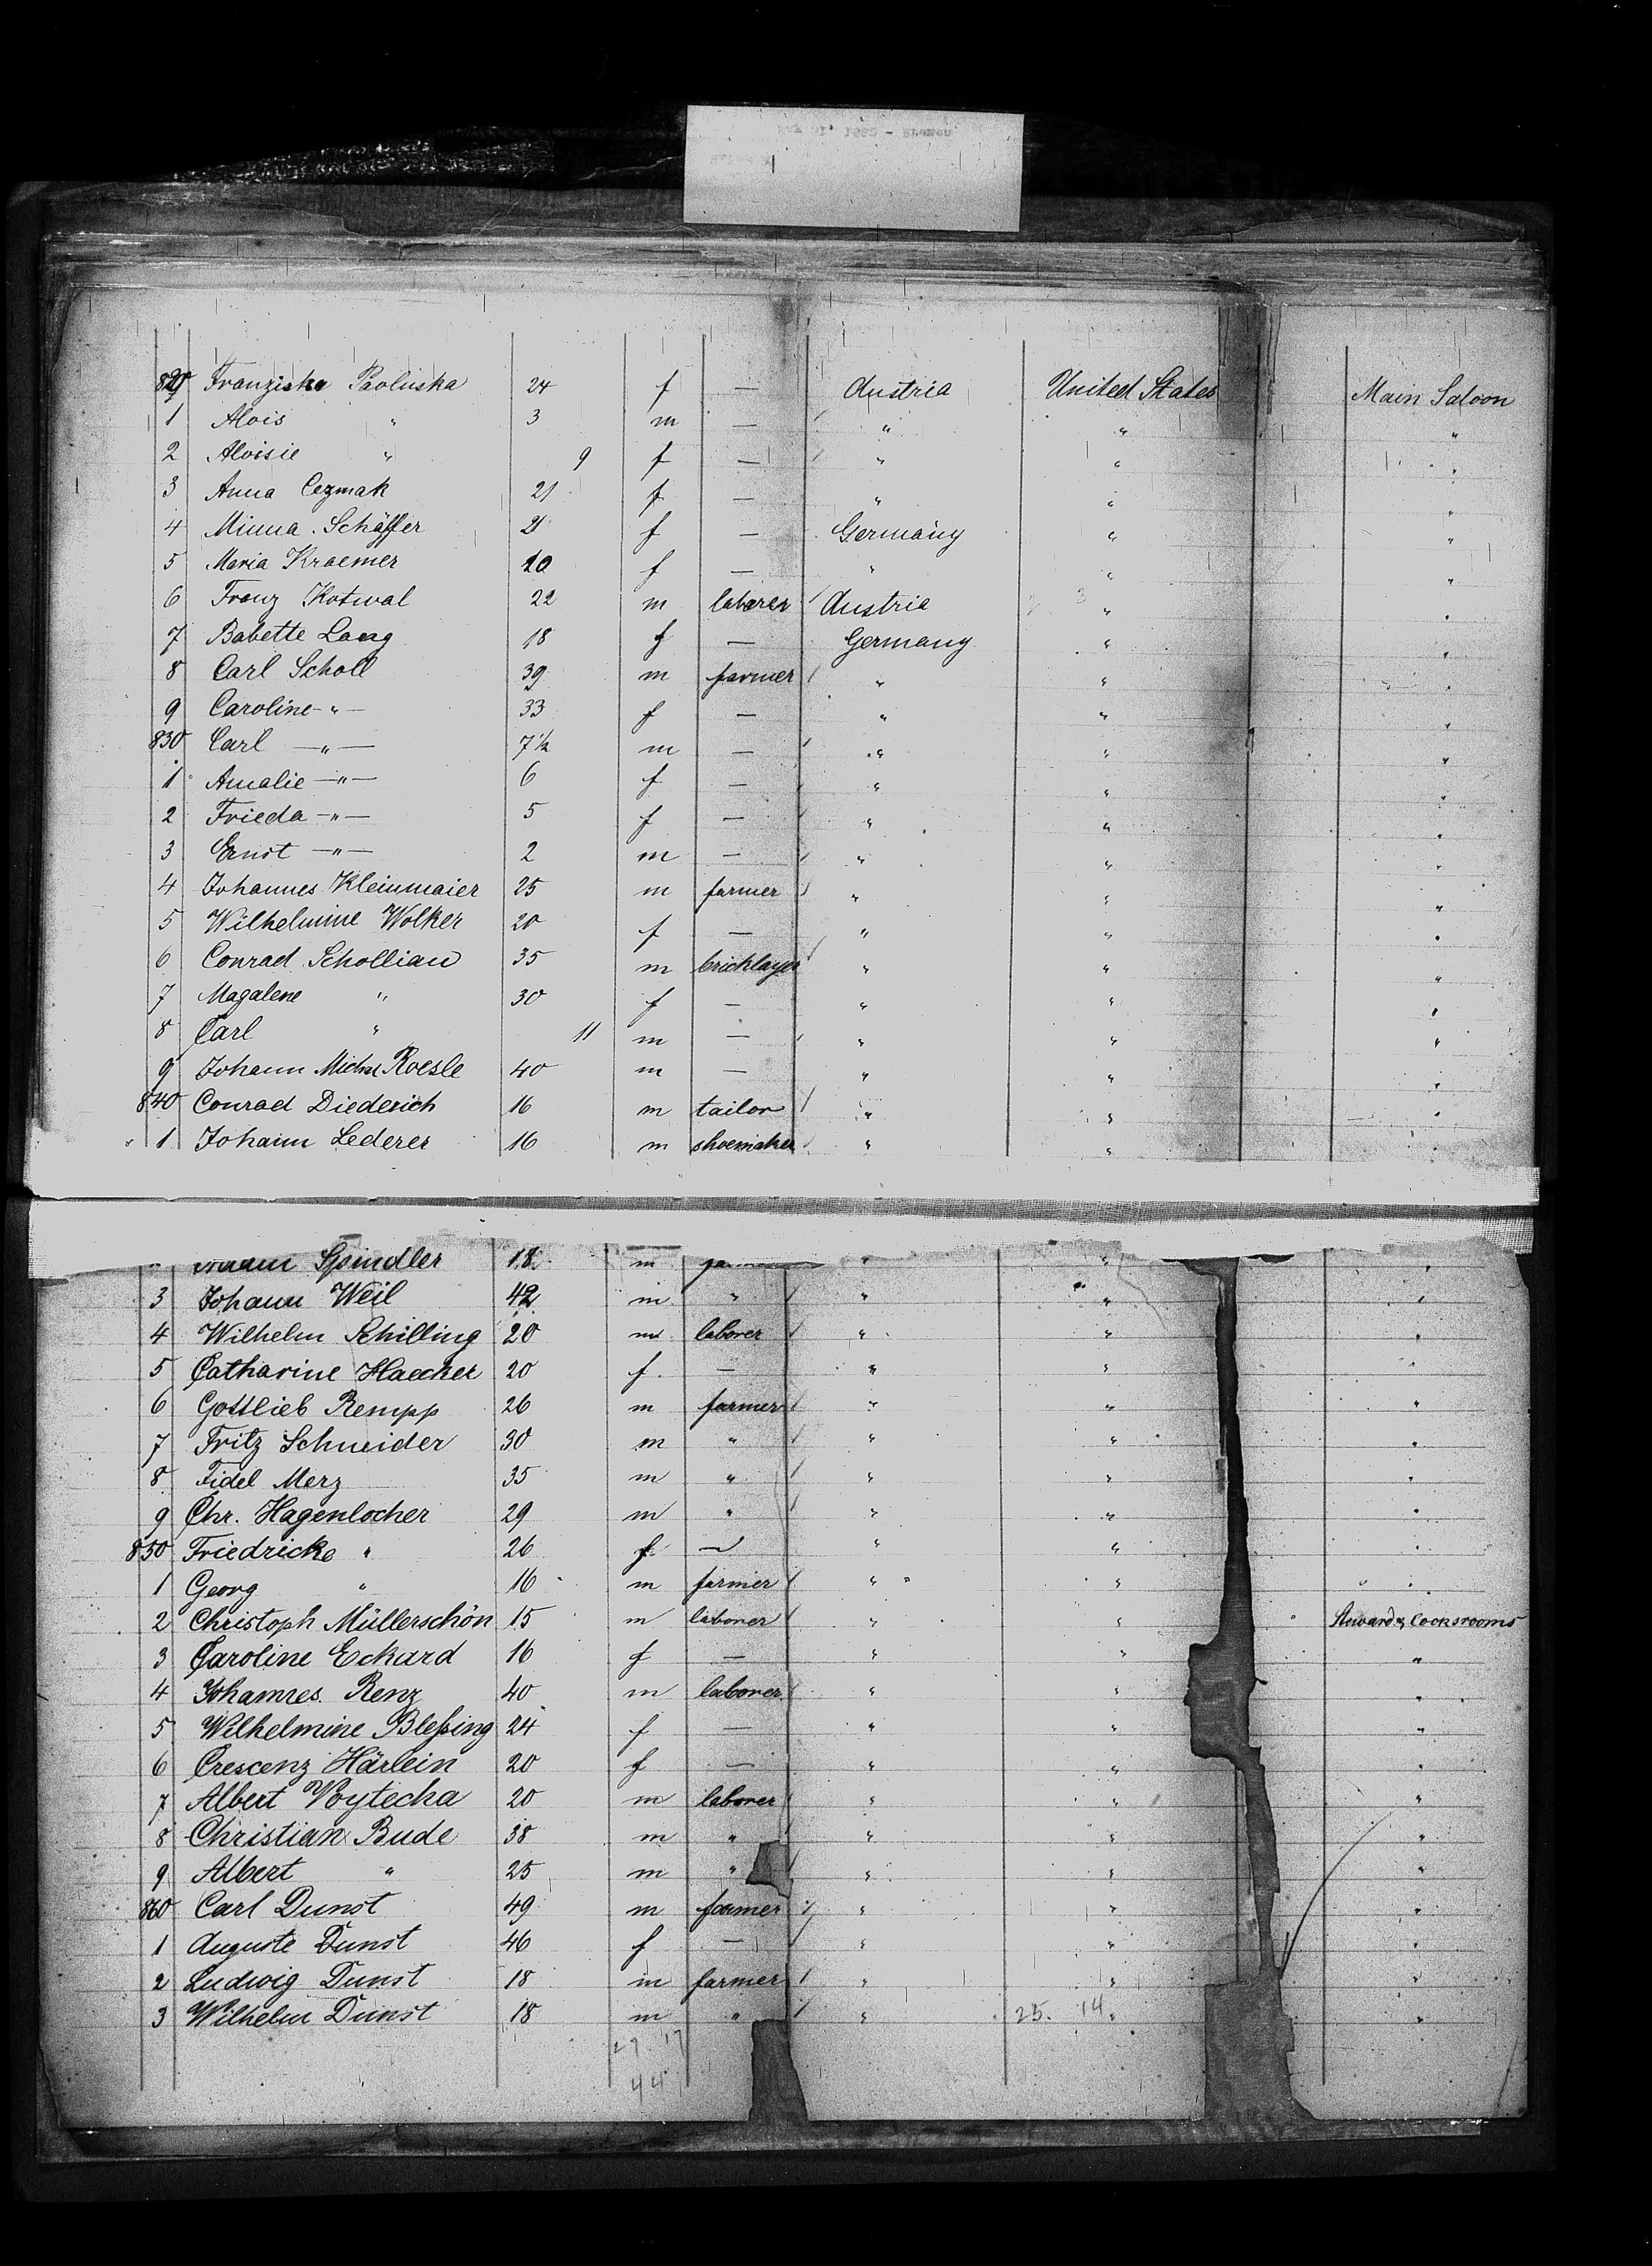 820 Franziska Pavluska 24 f — Austria United States Main Saloon
1 Alois " 3 m — " " "
2 Aloisie " 9 f — " " "
3 Anna Cezmak 21 f — " " "
4 Minna Schäffer 21 f — Germany " "
5 Maria Kraemer 20 f — " " "
6 Franz Kotwal 22 m laborer Austria " "
7 Babette Lang 18 f — Germany " "
8 Carl Scholl 39 m farmer " " "
9 Caroline —"— 33 f — " " "
830 Carl —"— 7½ m — " " "
1 Amalie —"— 6 f — " " "
2 Frieda —"— 5 f — " " "
3 Ernst —"— 2 m — " " "
4 Johannes Kleinmaier 25 m farmer " " "
5 Wilhelmine Wolker 20 f — " " "
6 Conrad Schollian 35 m bricklayer " " "
7 Magalene " 30 f — " " "
8 Carl " 11 m — " " "
9 Johann Michel Roesle 40 m — " " "
840 Conrad Diederich 16 m tailor " " "
1 Johann Lederer 16 m shoemaker " " "
Spindler 18 m " " "
3 Johann Weil 42 m " " " "
4 Wilhelm Schilling 20 m laborer " " "
5 Catharine Haecker 20 f — " " "
6 Gottlieb Rempp 26 m farmer " " "
7 Fritz Schneider 30 m " " " "
8 Fidel Merz 35 m " " " "
9 Chr. Hagenlocher 29 m " " " "
850 Friedricke " 26 f — " " "
1 Georg " 16 m farmer " " "
2 Christoph Müllerschön 15 m laborer " " Steward & Cooksrooms
3 Caroline Eckard 16 f — " " "
4 Johannes Renz 40 m laborer " " "
5 Wilhelmine Bleſsing 24 f — " " "
6 Crescenz Härlein 20 f — " " "
7 Albert Voytecha 20 m laborer " " "
8 Christian Bude 38 m " " " "
9 Albert " 25 m " " " "
860 Carl Dunst 49 m farmer " " "
1 Auguste Dunst 46 f — " " "
2 Ludwig Dunst 18 m farmer " " "
3 Wilhelm Dunst 18 m " " 25. 14 " "
27 17
44